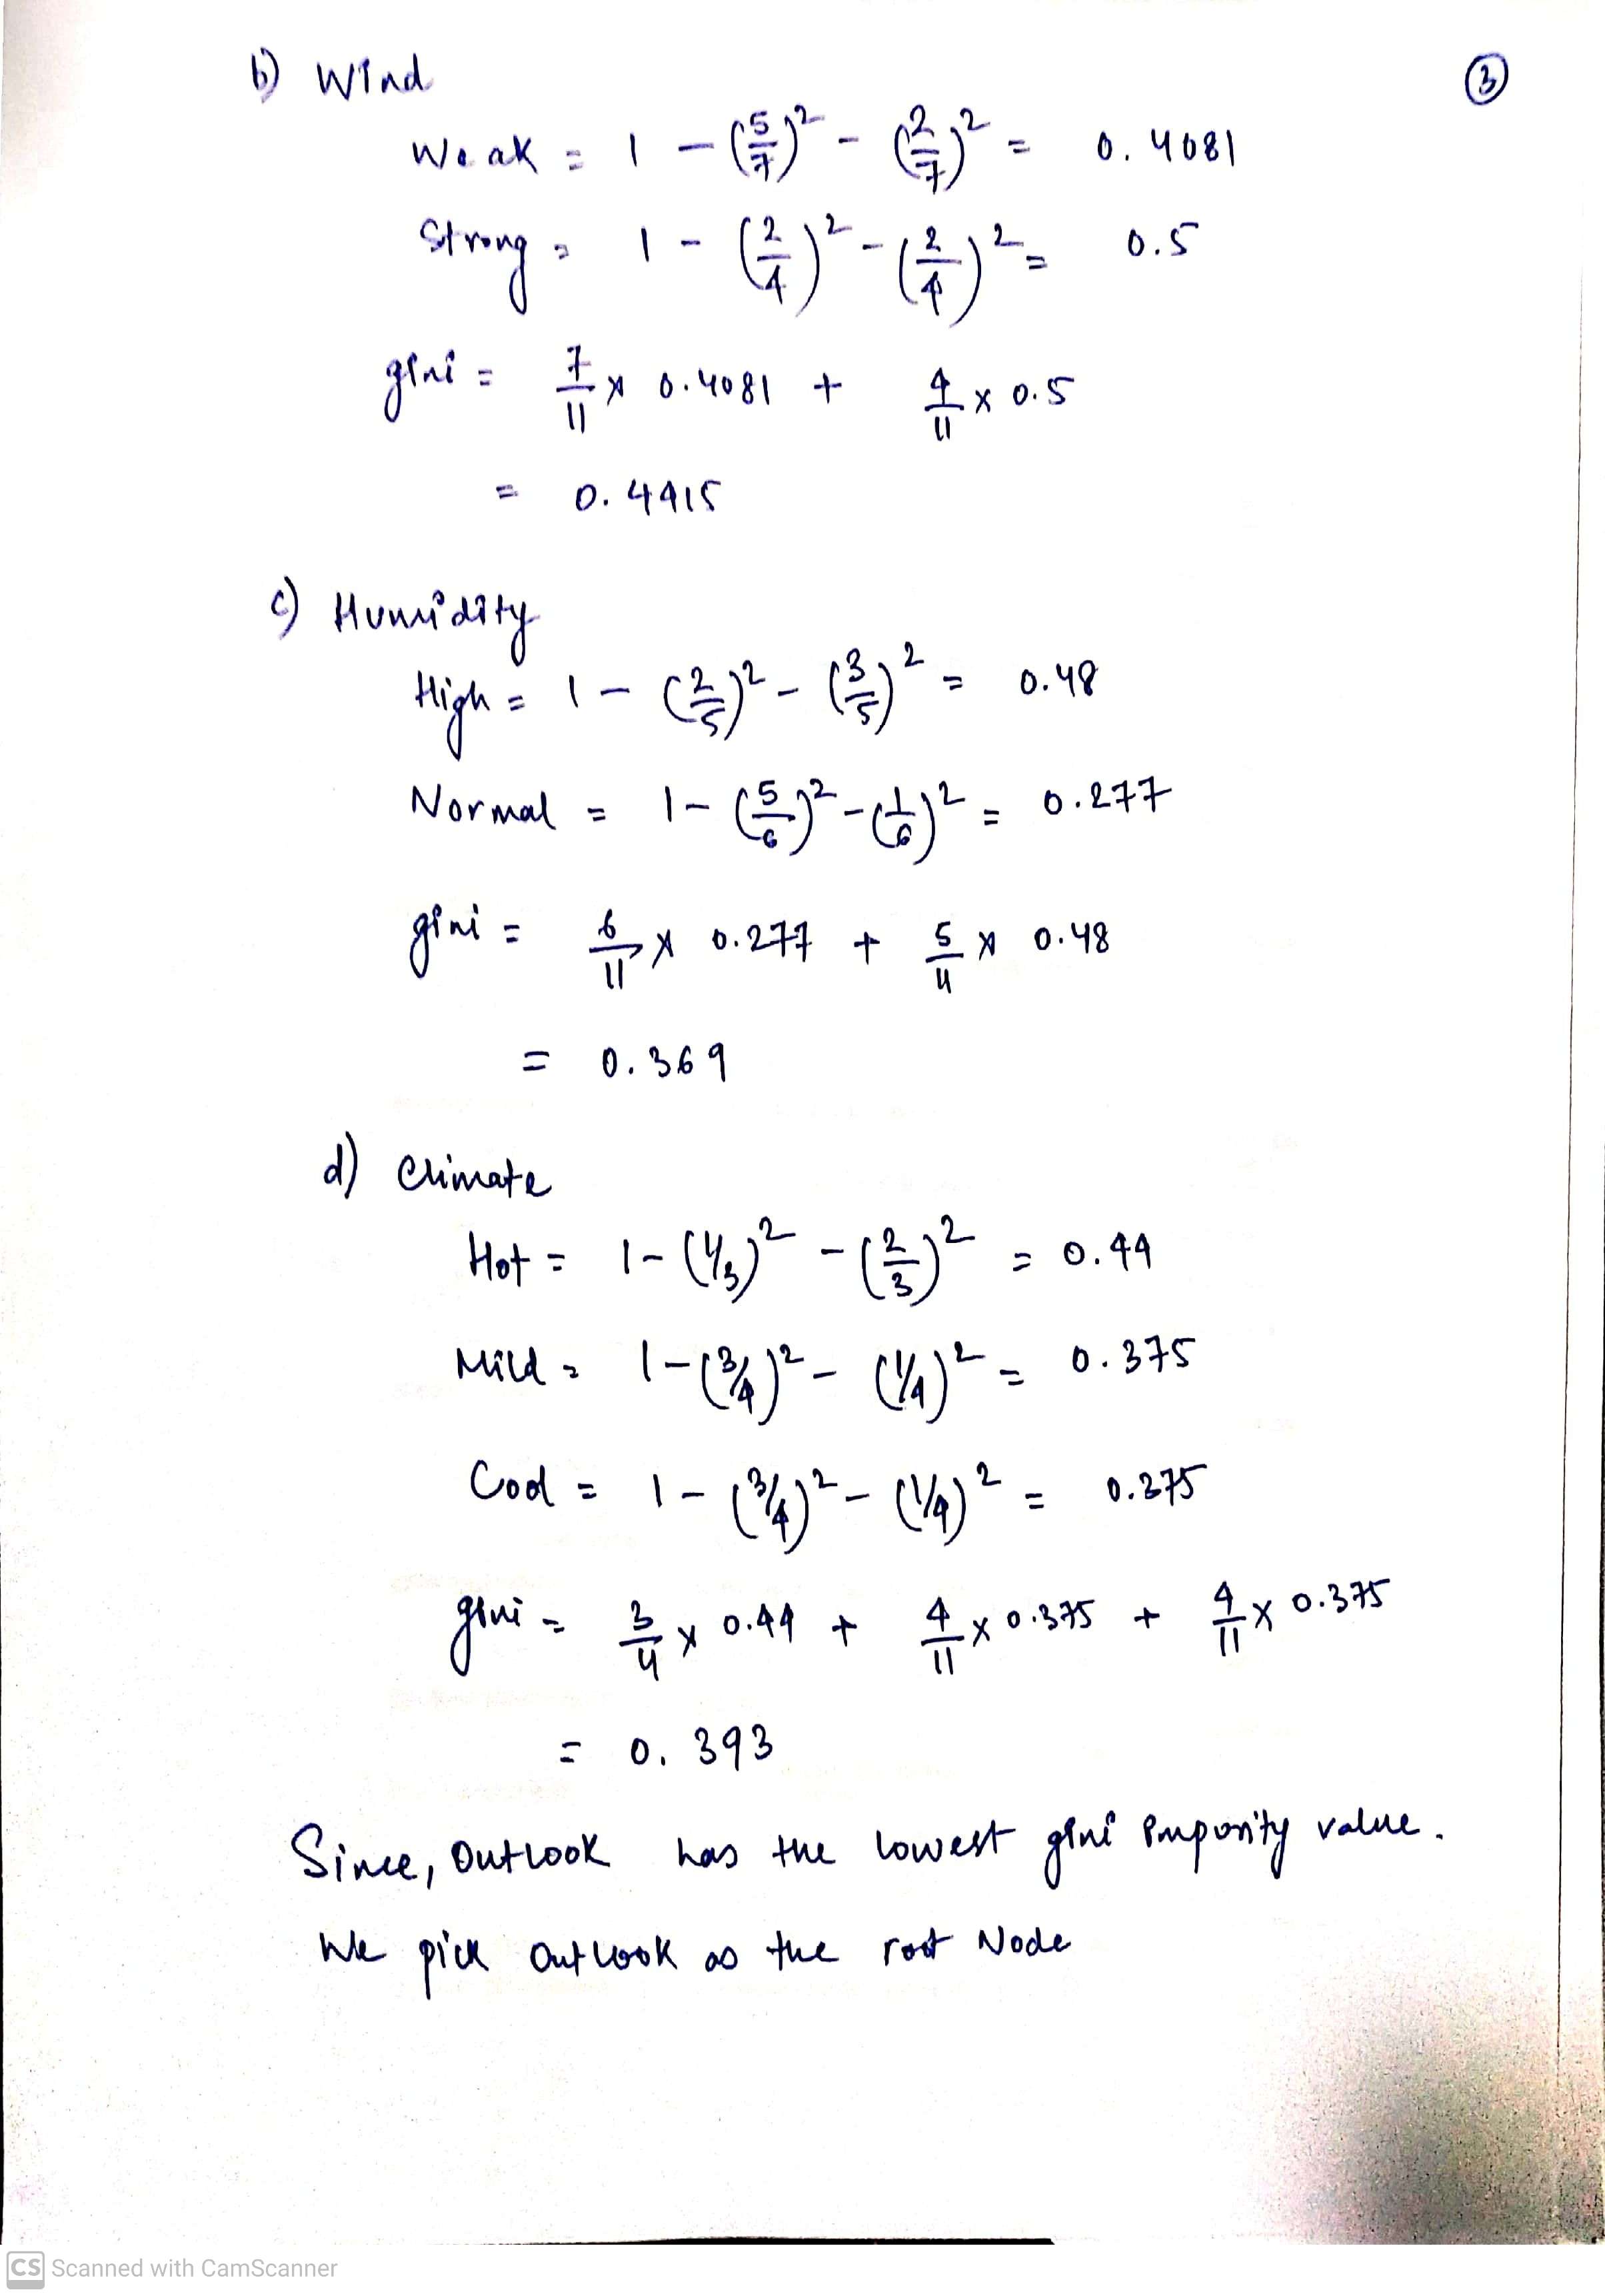 b) Wind
③
Weak = 1 - (5/7)² - (2/7)² = 0.4081
Strong = 1 - (2/4)² - (2/4)² = 0.5
gini = 7/11 x 0.4081 + 4/11 x 0.5
= 0.4415
c) Humidity
High = 1 - (2/5)² - (3/5)² = 0.48
Normal = 1 - (5/6)² - (1/6)² = 0.277
gini = 6/11 x 0.277 + 5/11 x 0.48
= 0.369
d) Climate
Hot = 1 - (1/3)² - (2/3)² = 0.44
Mild = 1 - (3/4)² - (1/4)² = 0.375
Cool = 1 - (3/4)² - (1/4)² = 0.375
gini = 3/11 x 0.44 + 4/11 x 0.375 + 4/11 x 0.375
= 0.393
Since, Outlook has the lowest gini impurity value.
We pick outlook as the root Node
CS Scanned with CamScanner